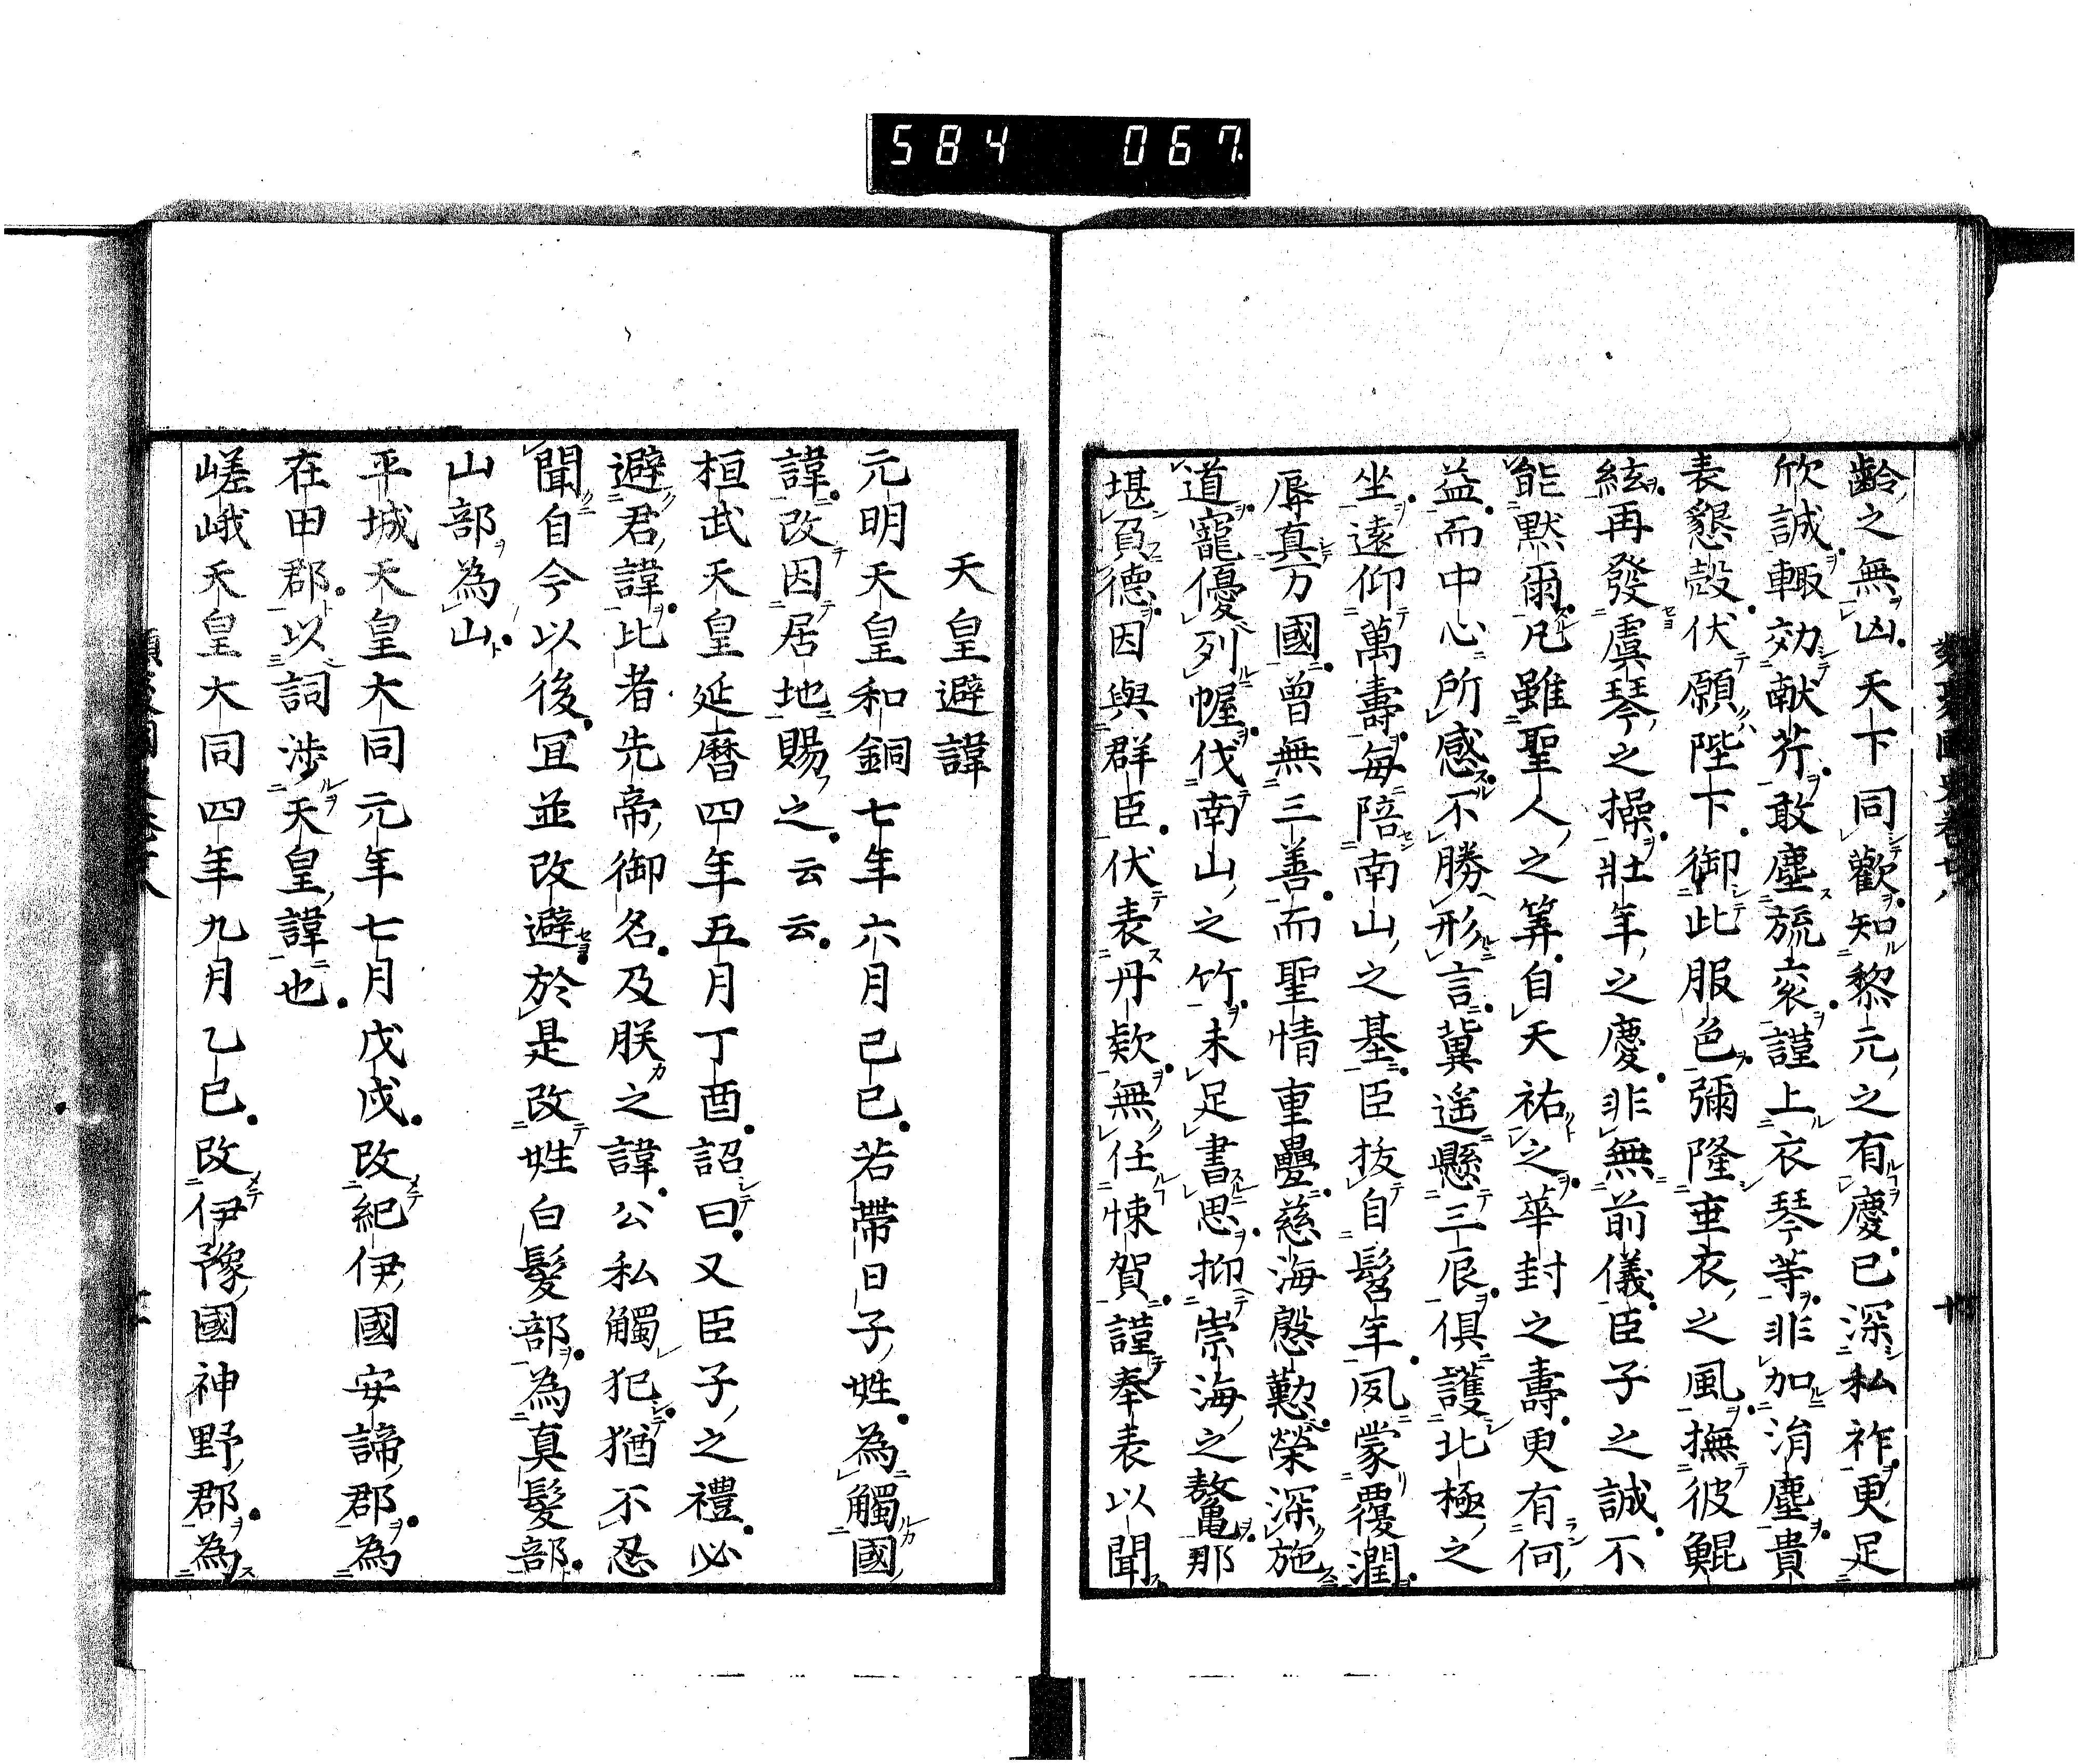 584 067
齡之無凶天下同歡知黎元之有慶已深私祚更足
欣誠輙効献芥敢塵旒衮謹上衣琴等非加涓塵貴
表懇愨伏願陛下御此服色彌隆垂衣之風撫彼鯤
絃再發虞琴之操壯年之慶非無前儀臣子之誠不
能黙爾凡雖聖人之筭自天祐之華封之壽更有何
益而中心所感不勝形言冀遥懸三辰俱護北極之
坐遠仰萬壽毎陪南山之基臣抜自髫年夙蒙覆潤
辱真万國曾無三善而聖情重疊慈海慇懃榮深施
道寵優列幄伐南山之竹未足書思抑崇海之鼇那
堪負德因與群臣伏表丹欵無任悚賀謹奉表以聞
天皇避諱
元明天皇和銅七年六月己巳若帶日子姓為觸國
諱改因居地賜之云云
桓武天皇延曆四年五月丁酉詔曰又臣子之禮必
避君諱比者先帝御名及朕之諱公私觸犯猶不忍
聞自今以後冝並改避於是改姓白髮部為真髮部
山部為山
平城天皇大同元年七月戊戌改紀伊國安諦郡為
在田郡以詞渉天皇諱也
嵯峨天皇大同四年九月乙巳改伊豫國神野郡為